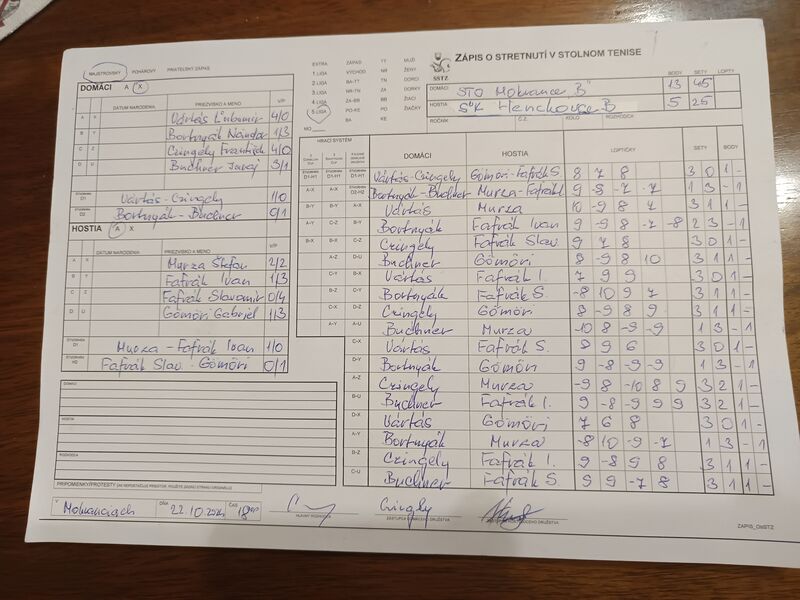 MAJSTROVSKÝ POHÁROVÝ PRIATEĽSKÝ ZÁPAS
DOMÁCI A X
DÁTUM NARODENIA PRIEZVISKO A MENO V/P
A X Vártás Ľubomír 4/0
B Y Bortnyák Nándor 1/3
C Z Czingely František 4/0
D U Buchner Juraj 3/1
D1 Vártás - Czingely 1/0
D2 Bortnyák - Buchner 0/1
HOSTIA A X
DÁTUM NARODENIA PRIEZVISKO A MENO V/P
A X Murza Štefan 2/2
B Y Fafrák Ivan 1/3
C Z Fafrák Slavomír 0/4
D U Gömöri Gabriel 1/3
Murza - Fafrák Ivan 1/0
Fafrák Slav. - Gömöri 0/1
DOMÁCI
HOSTIA
ROZHODCA
PRIPOMIENKY/PROTESTY
V Mokranciach DŇA 22.10.2024 ČAS 18
EXTRA ZÁPAD TT MUŽI
1.LIGA VÝCHOD NR ŽENY
2.LIGA BA-TT TN DORCI
3.LIGA NR-TN ZA DORKY
4.LIGA ZA-BB BB ŽIACI
5.LIGA PO-KE PO ŽIAČKY
BA KE
SSTZ
ZÁPIS O STRETNUTÍ V STOLNOM TENISE
BODY SETY LOPTY
DOMÁCI STO Mokrance "B" 13 45
HOSTIA ŠK Henckovce B 5 25
ROČNÍK Č.Z. KOLO ROZHODCA
HRACÍ SYSTÉM
DOMÁCI HOSTIA LOPTIČKY SETY BODY
Vártás-Czingely Gömöri-Fafrák S. 8 7 8 3 0 1 -
Bortnyák-Buchner Murza-Fafrák I. 9 -8 -7 -7 1 3 - 1
Vártás Murza 10 -9 8 7 3 1 1 -
Bortnyák Fafrák Ivan 9 -9 8 -7 -8 2 3 - 1
Czingely Fafrák Slav 9 7 8 3 0 1 -
Buchner Gömöri 8 -9 8 10 3 1 1 -
Vártás Fafrák I. 7 9 9 3 0 1 -
Bortnyák Fafrák S. -8 10 9 7 3 1 1 -
Czingely Gömöri 8 -9 8 9 3 1 1 -
Buchner Murza -10 8 -9 -9 1 3 - 1
Vártás Fafrák S. 8 9 6 3 0 1 -
Bortnyák Gömöri 9 -8 -9 -9 1 3 - 1
Czingely Murza -9 8 -10 8 9 3 2 1 -
Buchner Fafrák I. 9 -8 -9 9 9 3 2 1 -
Vártás Gömöri 7 6 8 3 0 1 -
Bortnyák Murza -8 10 -9 -7 1 3 - 1
Czingely Fafrák I. 9 -8 9 8 3 1 1 -
Buchner Fafrák S 9 9 -7 8 3 1 1 -
HLAVNÝ ROZHODCA
Czingely
ZÁSTUPCA DOMÁCEHO DRUŽSTVA
ZAPIS_OsSTZ